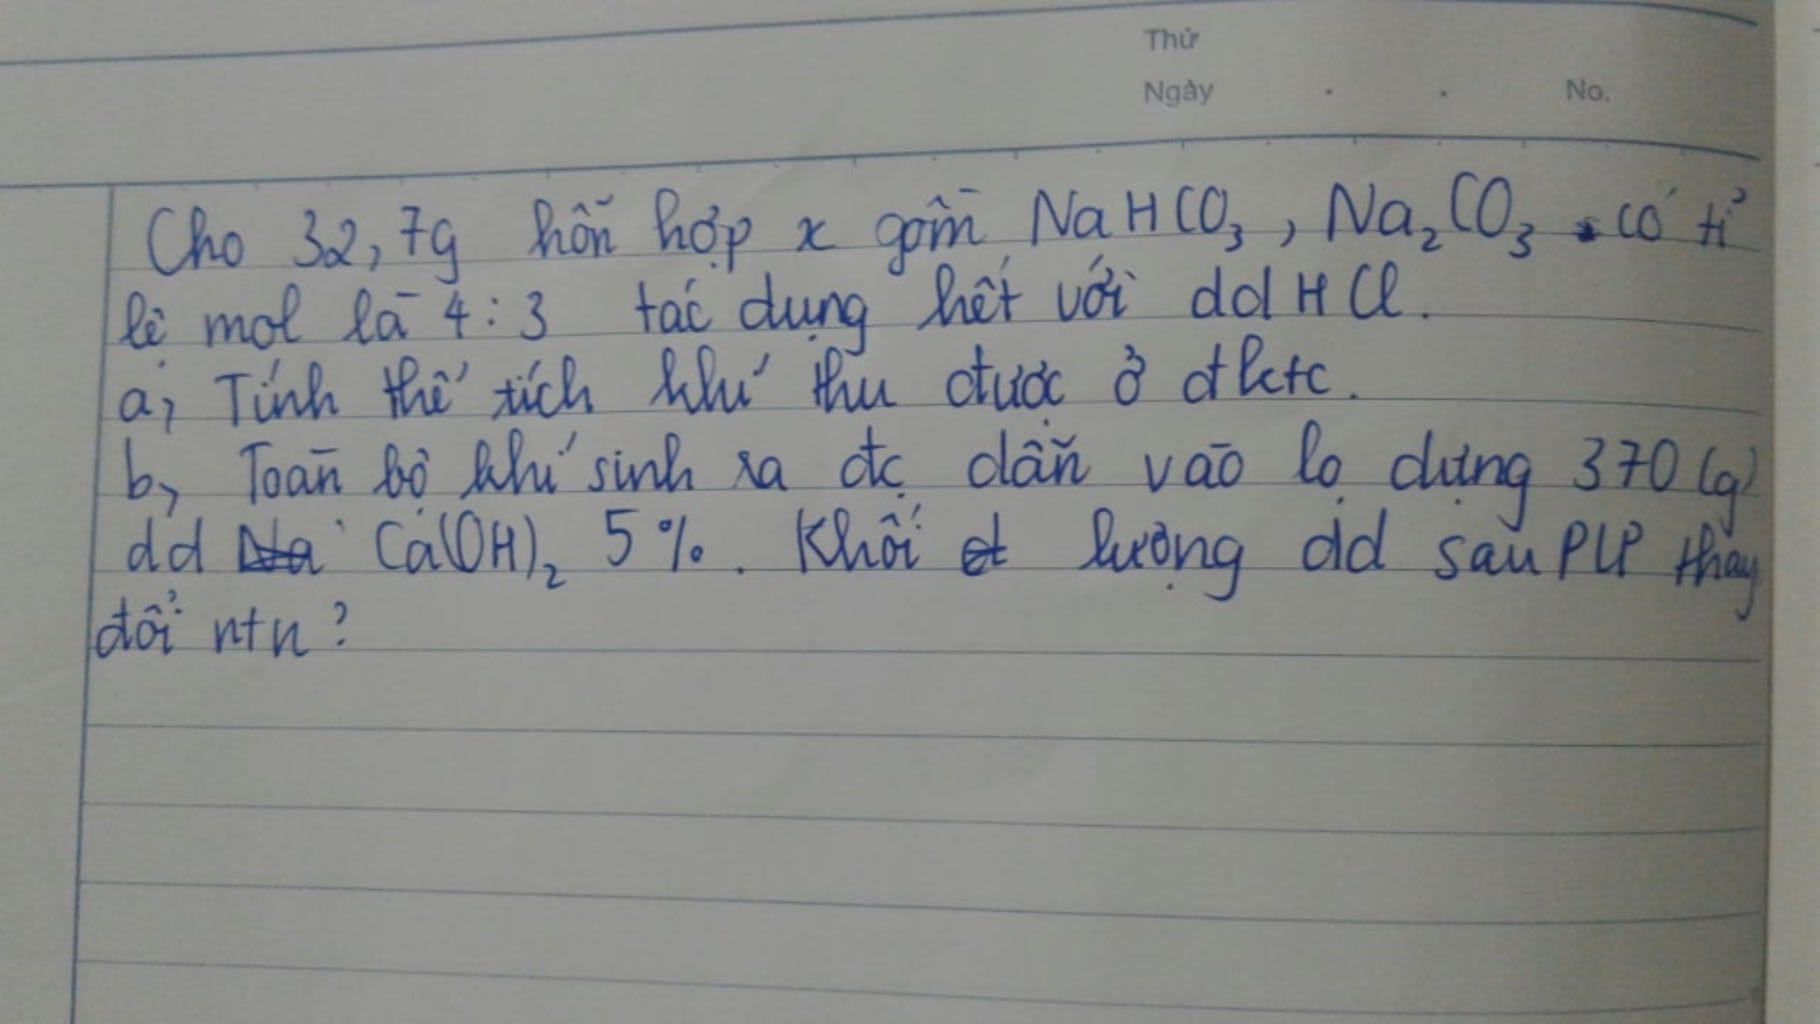 Thứ
Ngày . . No.
Cho 32,7g hỗn hợp x gồm NaHCO₃, Na₂CO₃ có tỉ
lệ mol là 4:3 tác dụng hết với dd HCl.
a, Tính thể tích khí thu được ở đktc.
b, Toàn bộ khí sinh ra đc dẫn vào lọ đựng 370 (g)
dd Ca(OH)₂ 5%. Khối lượng dd sau PƯ thay
đổi ntn?